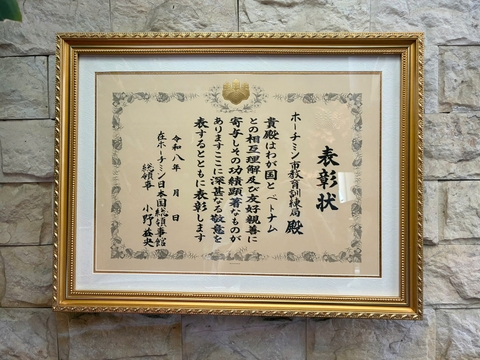 表彰状
ホーチミン市教育訓練局 殿
貴殿はわが国とベトナム
との相互理解及び友好親善に
寄与しその功績顕著なものが
ありますここに深甚なる敬意を
表するとともに表彰します
令和八年 月 日
在ホーチミン日本国総領事館
総領事 小野益央